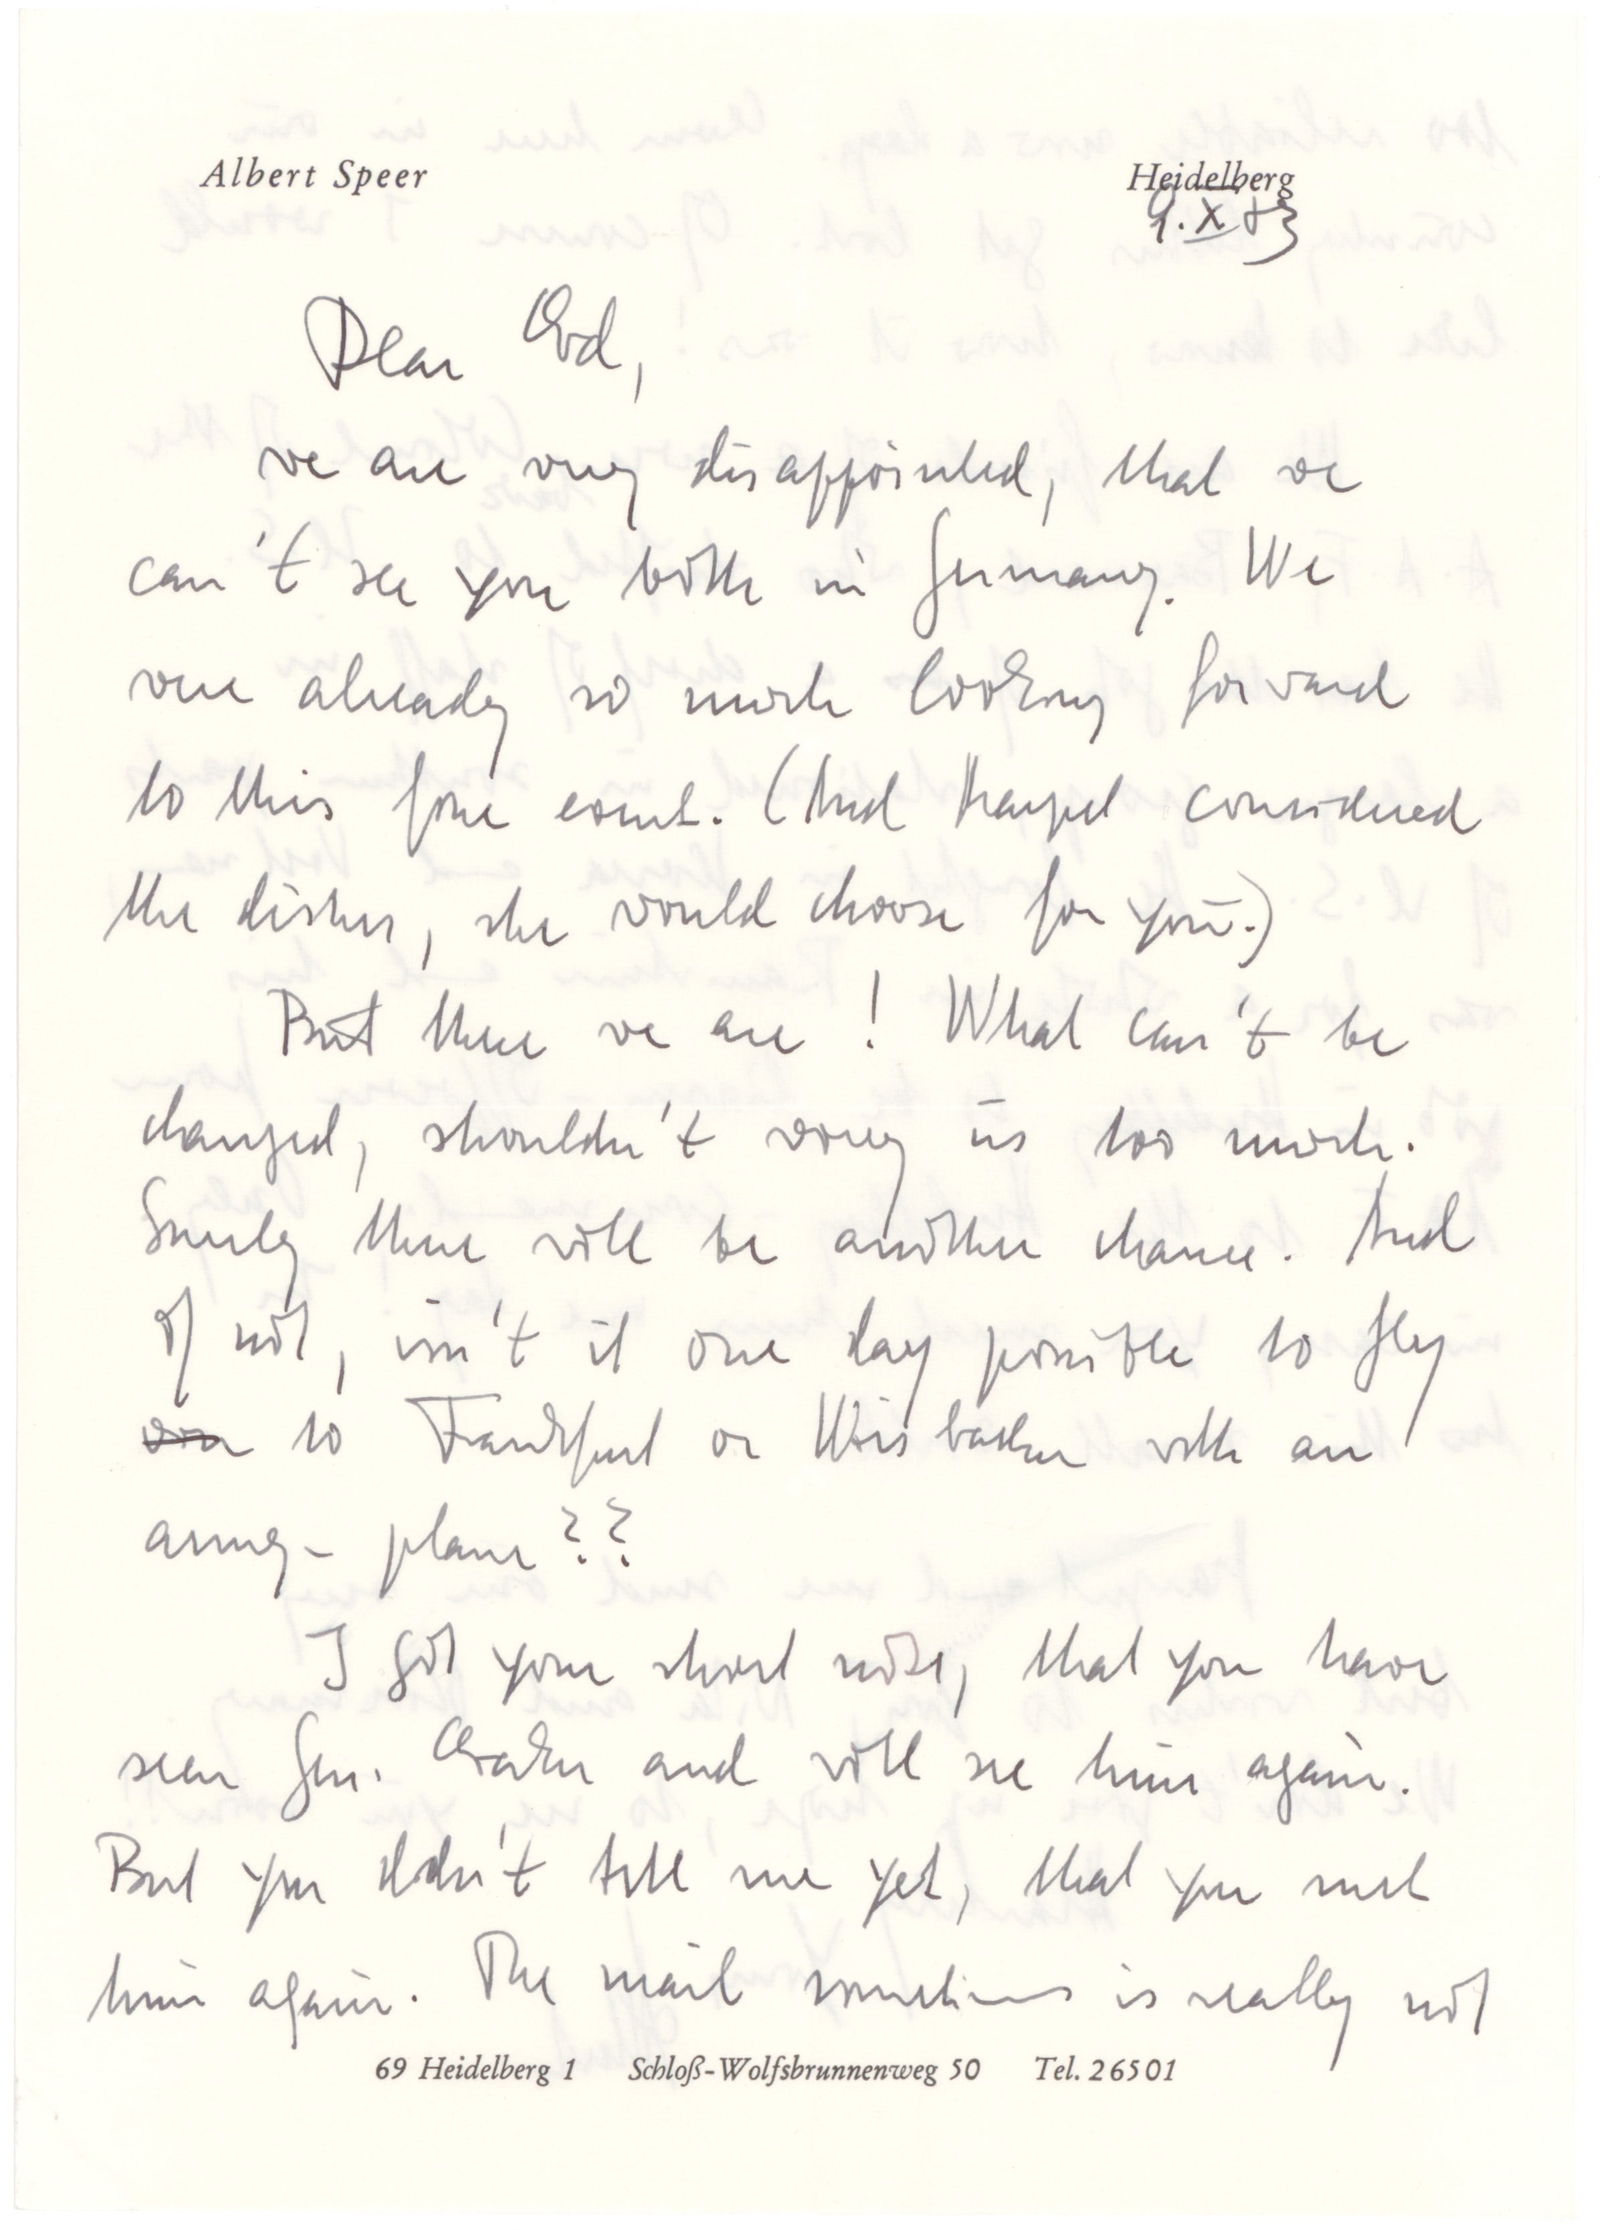 Albert Speer
Heidelberg
9. X. 73
Dear Ed,
we are very disappointed, that we
can't see you both in Germany. We
were already so much looking forward
to this fine event. (And Margret considered
the dishes, she would choose for you.)
But there we are! What can't be
changed, shouldn't worry us too much.
Surely there will be another chance. And
if not, isn't it one day possible to fly
to Frankfurt or Wiesbaden with an
army-plane??
I got your short note, that you have
seen Gen. Eaker and will see him again.
But you didn't tell me yet, that you met
him again. The mail sometimes is really not
69 Heidelberg 1 Schloß-Wolfsbrunnenweg 50 Tel. 26501